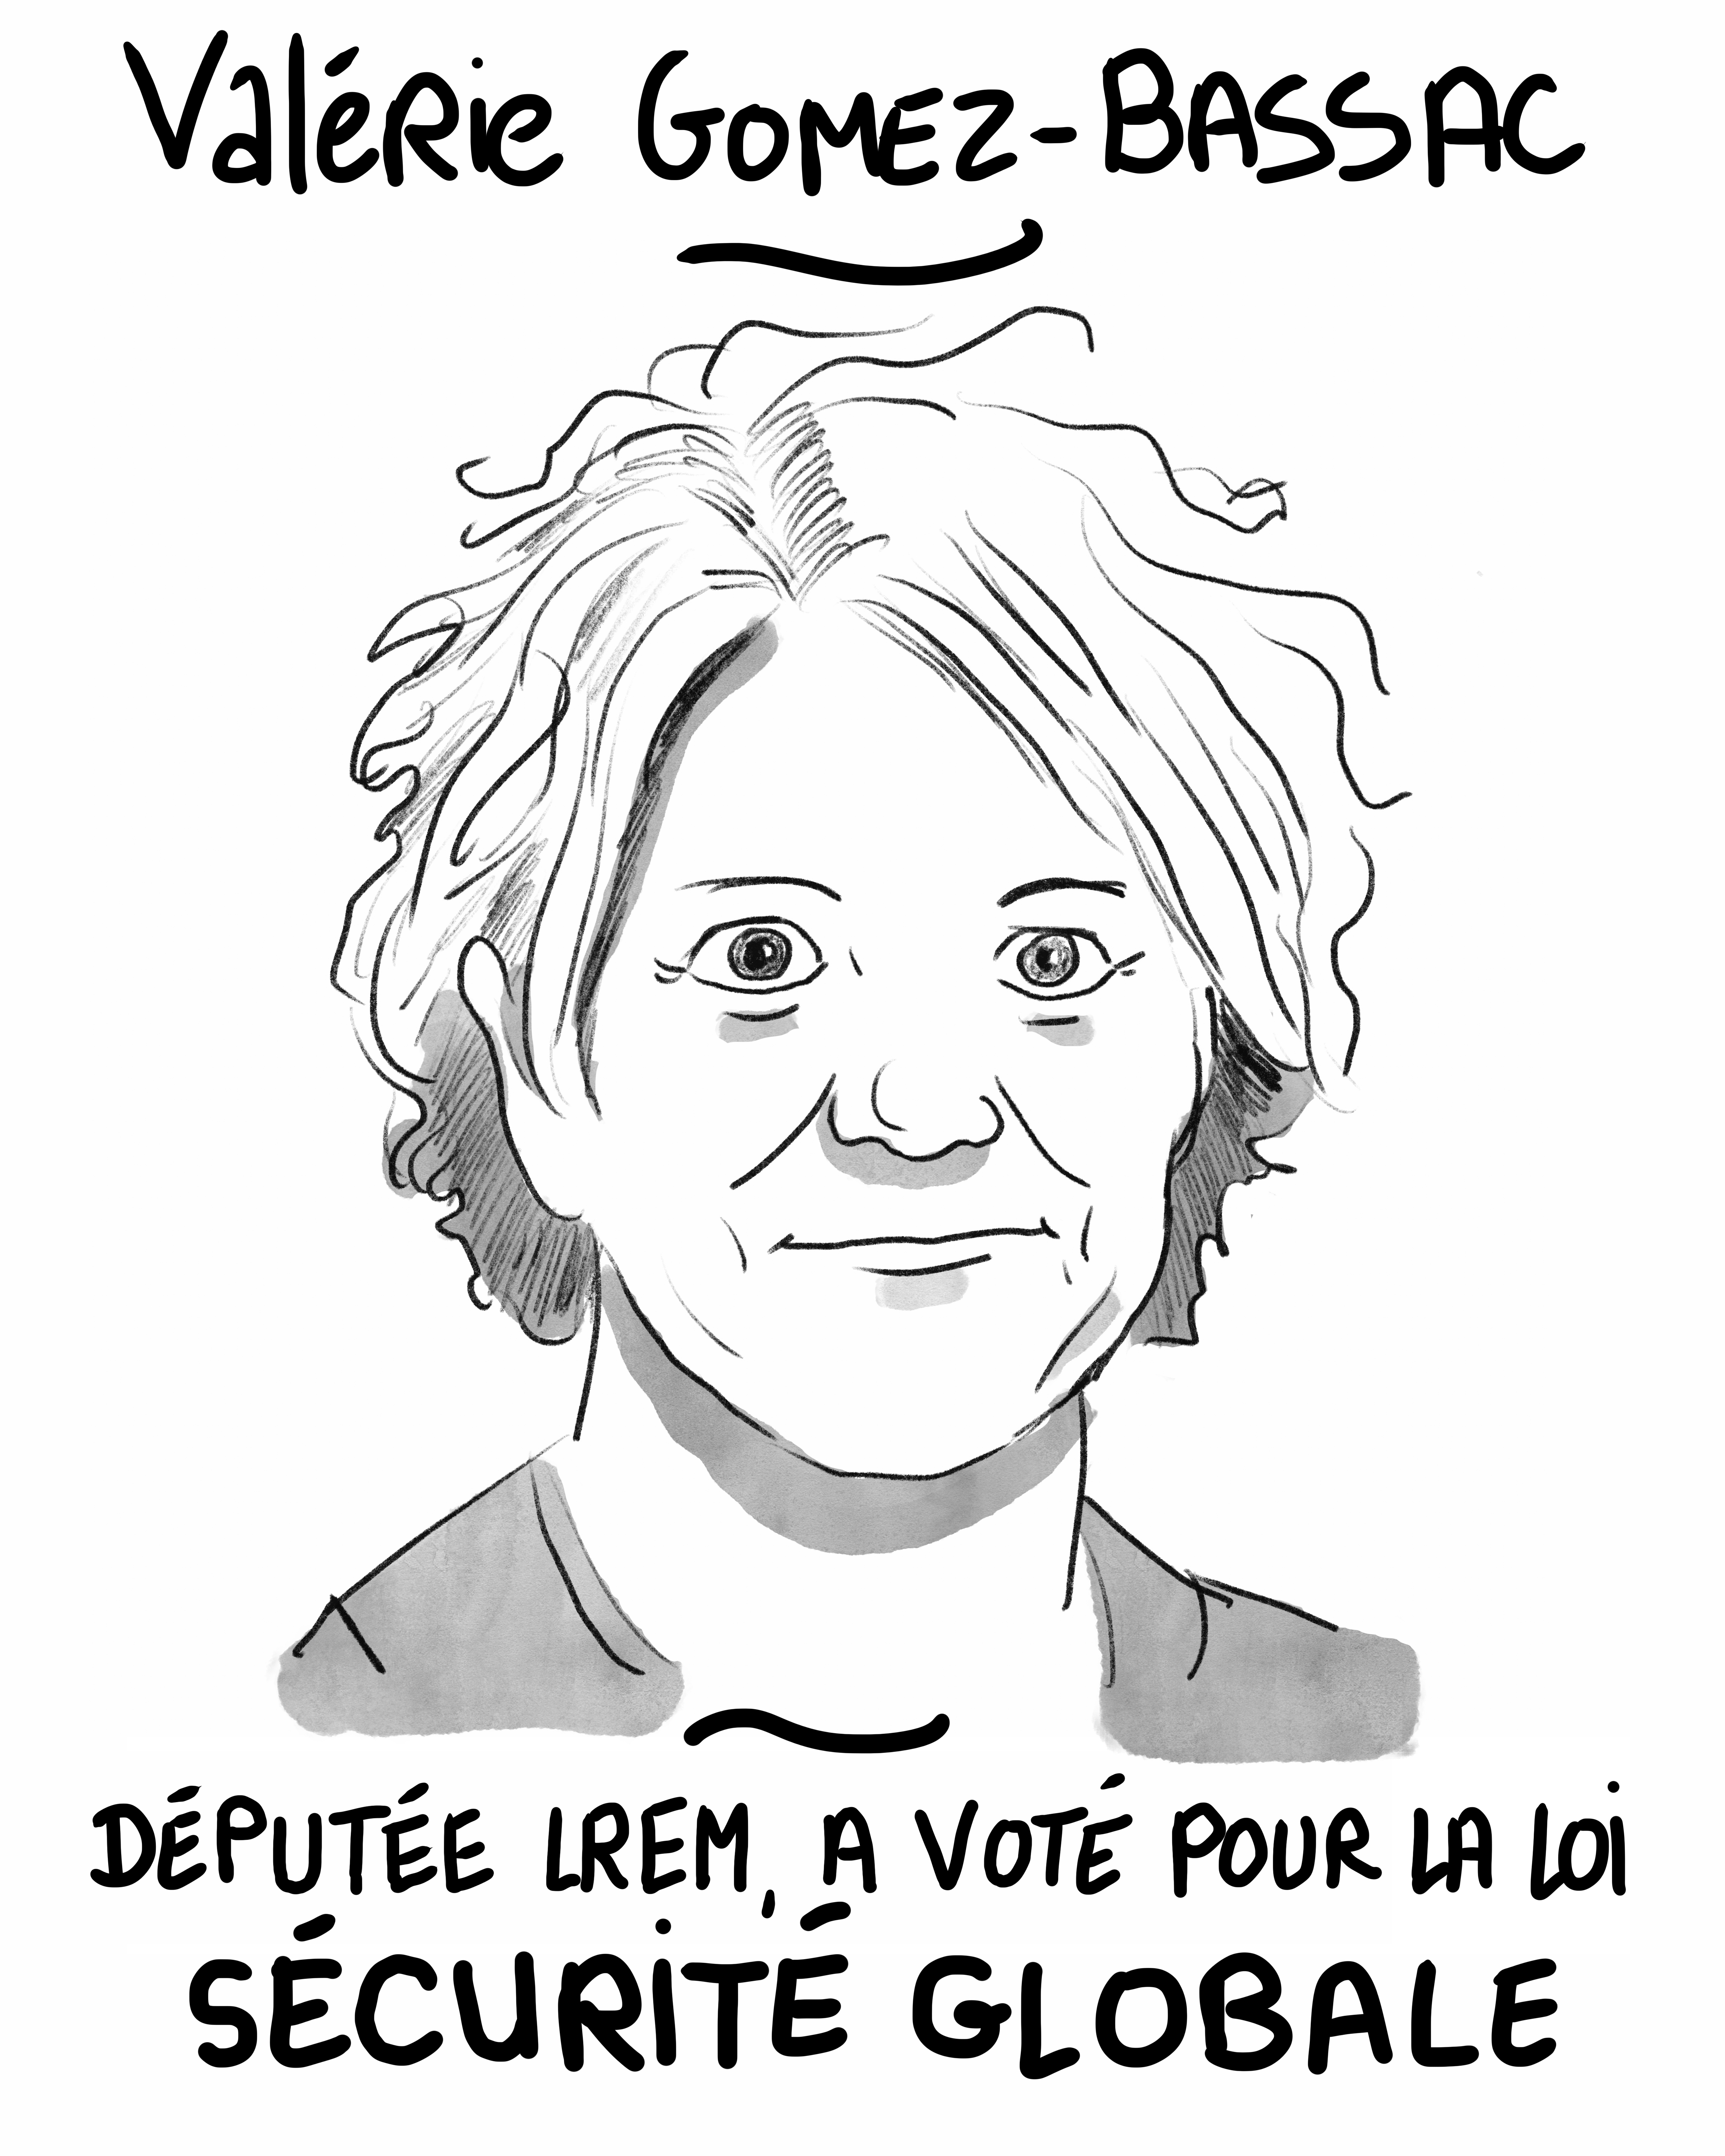 Valérie GOMEZ-BASSAC
DÉPUTÉE LREM, A VOTÉ POUR LA LOI
SÉCURITÉ GLOBALE